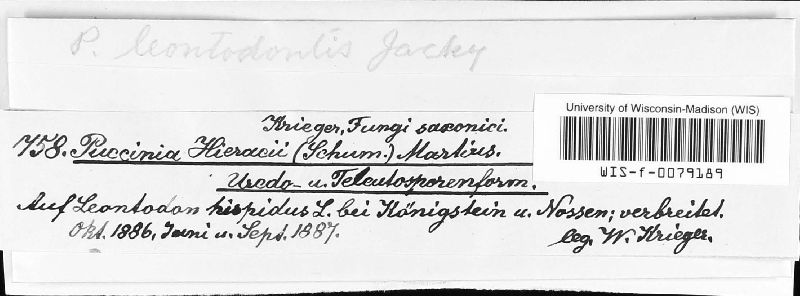 P. leontodontis Jacky
Krieger, Fungi saxonici.
758. Puccinia Hieracii (Schum.) Martius.
Uredo- u. Teleutosporenform.
Auf Leontodon hispidus L. bei Königstein u. Nossen; verbreitet.
Okt. 1886, Juni u. Sept. 1887.
leg. W. Krieger.
University of Wisconsin-Madison (WIS)
WIS-f-0079189